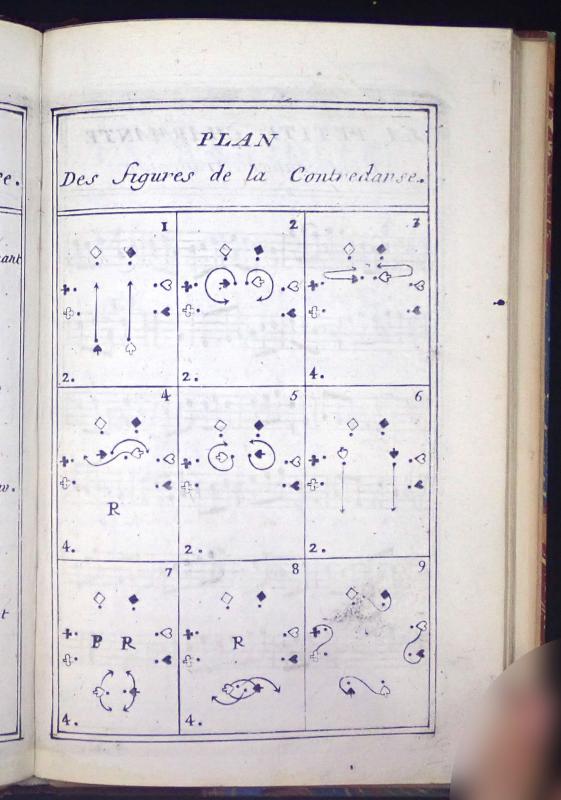 PLAN
Des figures de la Contredanse.
1
2.
2
2.
3
4.
4
R
4.
5
2.
6
2.
7
P R
4.
8
R
4.
9